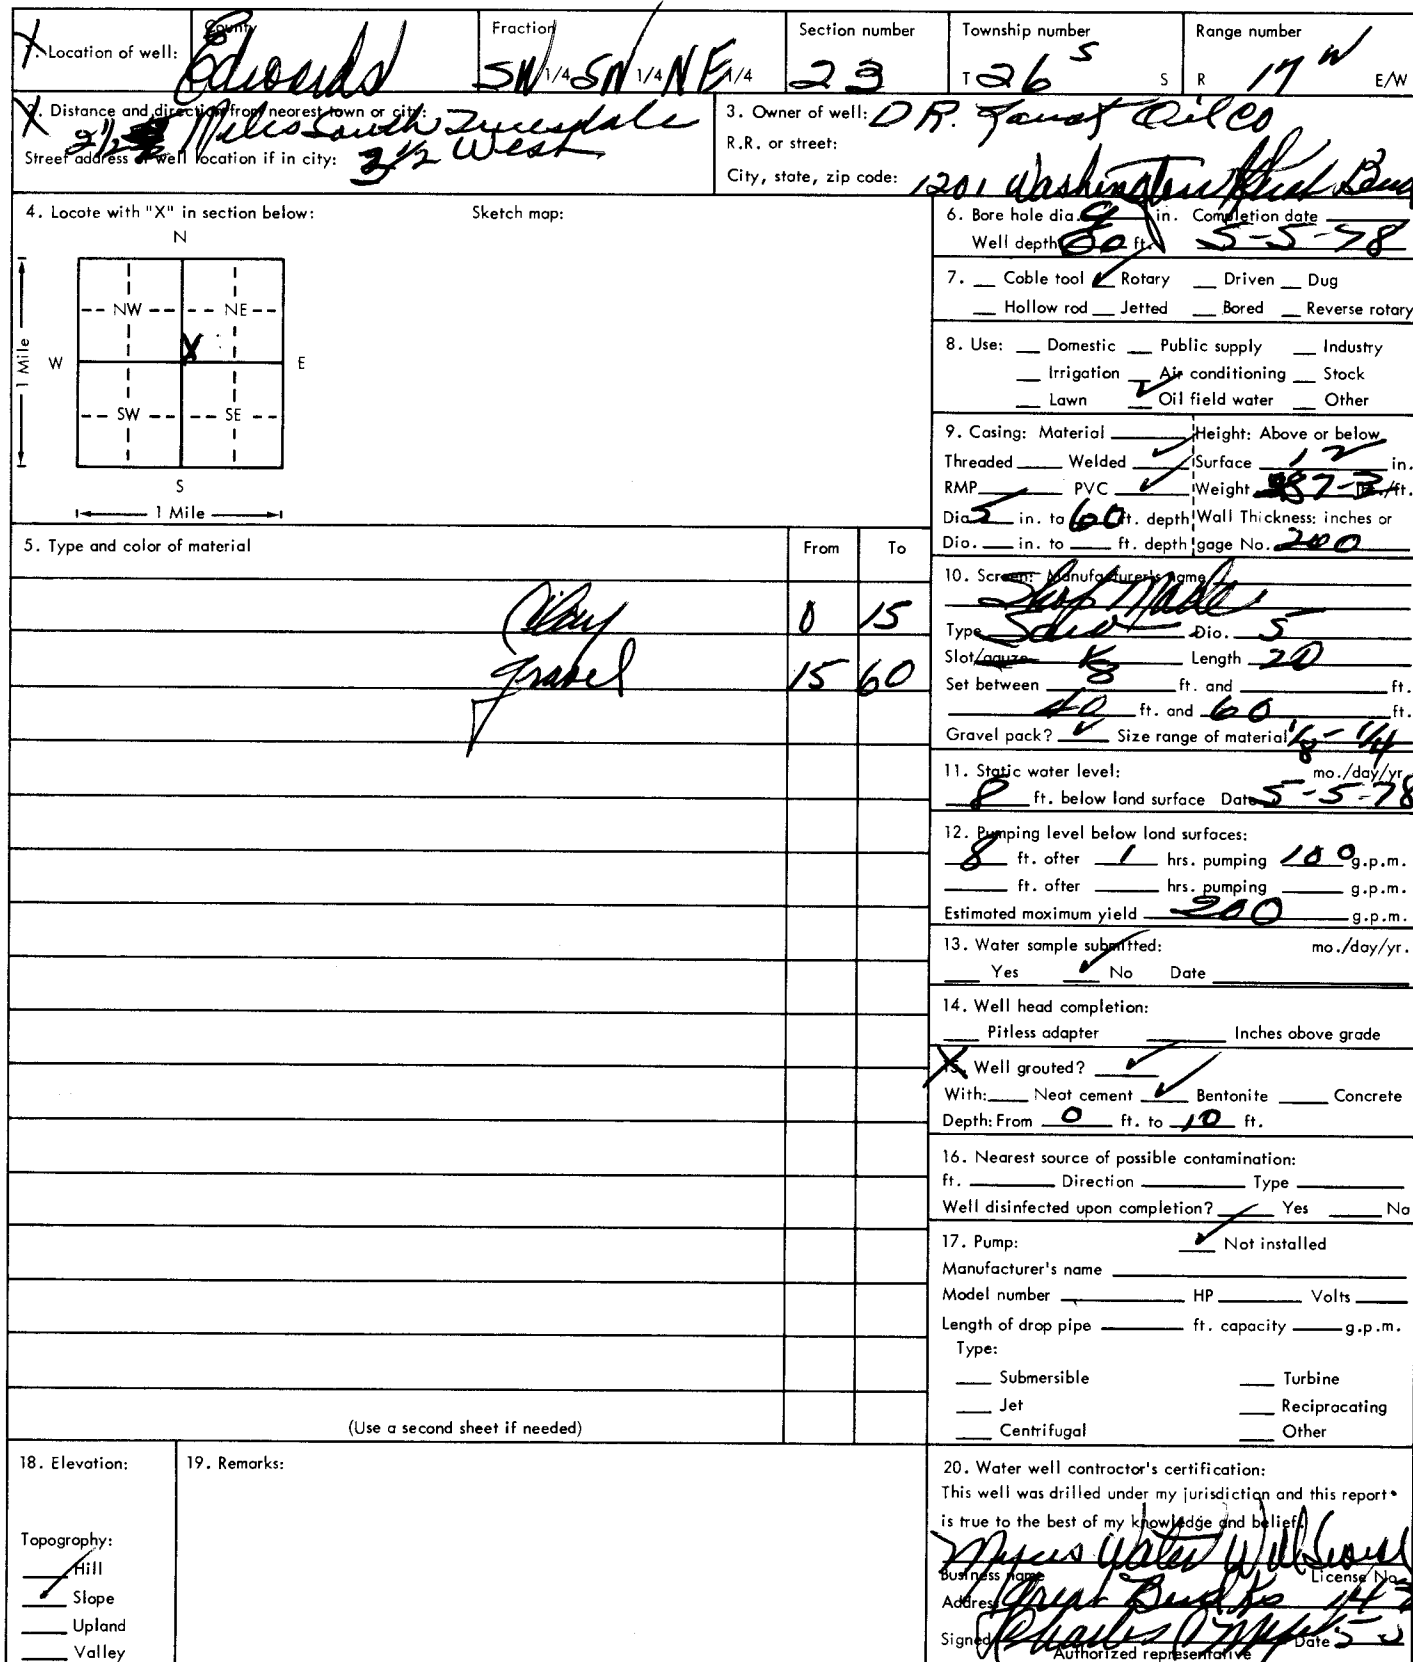 1. Location of well: County Edwards Fraction SW 1/4 SW 1/4 NE 1/4 Section number 23 Township number T 26 S S Range number R 17 W E/W
2. Distance and direction from nearest town or city: 2 1/2 Miles South Trousdale
Street address of well location if in city: 2 1/2 West
3. Owner of well: D R. Oil Co
R.R. or street:
City, state, zip code: 1201 Washington Great Bend
4. Locate with "X" in section below: Sketch map:
N
NW NE
X
W E
1 Mile
SW SE
S
1 Mile
5. Type and color of material From To
Clay 0 15
gravel 15 60
(Use a second sheet if needed)
6. Bore hole dia. 9 in. Completion date
Well depth 60 ft. 5-5-78
7. Cable tool ✓ Rotary Driven Dug
Hollow rod Jetted Bored Reverse rotary
8. Use: Domestic Public supply Industry
Irrigation Air conditioning Stock
Lawn ✓ Oil field water Other
9. Casing: Material Height: Above or below
Threaded Welded ✓ Surface 12 in.
RMP PVC ✓ Weight lb./ft.
Dia. 5 in. to 60 ft. depth Wall Thickness: inches or
Dia. in. to ft. depth gage No. 200
10. Screen: Manufacturer's name
Shop Made
Type Dia. 5
Slot/gauze 1/8 Length 20
Set between ft. and ft.
40 ft. and 60 ft.
Gravel pack? ✓ Size range of material 1/8 - 1/4
11. Static water level: mo./day/yr.
8 ft. below land surface Date 5-5-78
12. Pumping level below land surfaces:
8 ft. after 1 hrs. pumping 100 g.p.m.
ft. after hrs. pumping g.p.m.
Estimated maximum yield 200 g.p.m.
13. Water sample submitted: mo./day/yr.
Yes ✓ No Date
14. Well head completion:
Pitless adapter Inches above grade
15. Well grouted? ✓
With: Neat cement ✓ Bentonite Concrete
Depth: From 0 ft. to 10 ft.
16. Nearest source of possible contamination:
ft. Direction Type
Well disinfected upon completion? Yes No
17. Pump: ✓ Not installed
Manufacturer's name
Model number HP Volts
Length of drop pipe ft. capacity g.p.m.
Type:
Submersible Turbine
Jet Reciprocating
Centrifugal Other
18. Elevation:
Topography:
Hill
✓ Slope
Upland
Valley
19. Remarks:
20. Water well contractor's certification:
This well was drilled under my jurisdiction and this report
is true to the best of my knowledge and belief.
Myers Water Well
Business name License No.
Address Great Bend Ks 143
Signed Charles Date 5-
Authorized representative